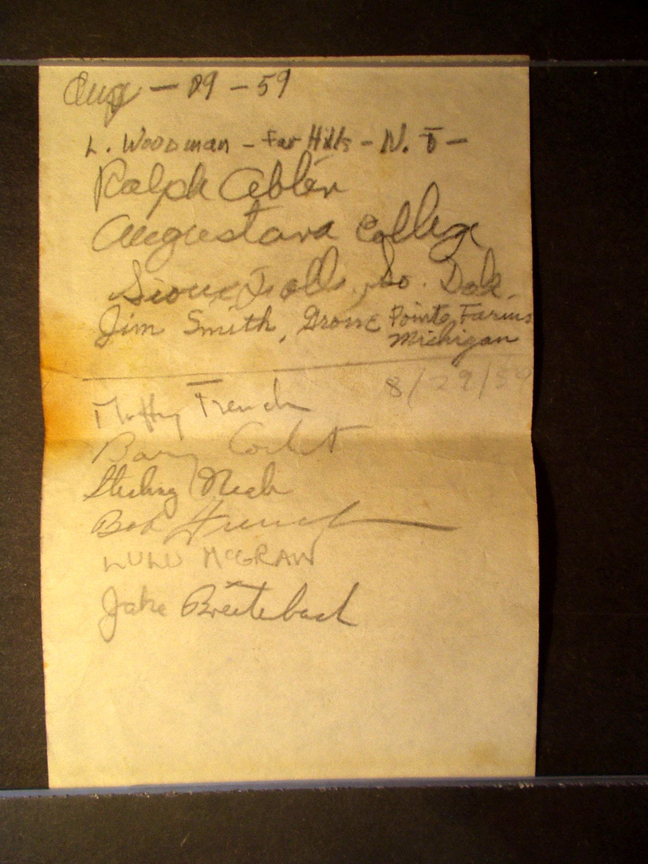 Aug - 29 - 59
L. Woodman - Far Hills - N. J -
Ralph
Augustana College
Sioux Falls, So. Dak.
Jim Smith, Grosse Pointe Farms
Michigan
8/29/59
Muffy French
Barry Corbet
Sterling Neale
Bob French
LULU McGRAW
Jake Breitenbach